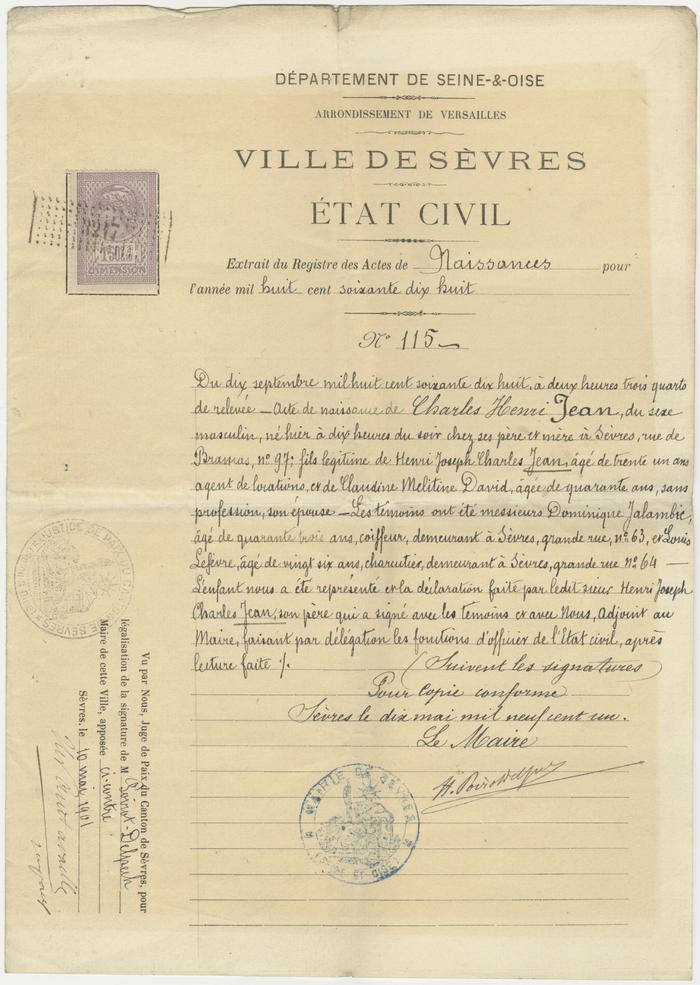 DÉPARTEMENT DE SEINE-&-OISE
ARRONDISSEMENT DE VERSAILLES
VILLE DE SÈVRES
ÉTAT CIVIL
Extrait du Registre des Actes de Naissances pour
l'année mil huit cent soixante dix huit
N° 115
Du dix septembre mil huit cent soixante dix huit, à deux heures trois quarts
de relevée – Acte de naissance de Charles Henri Jean, du sexe
masculin, né hier à dix heures du soir chez ses père et mère à Sèvres, rue de
Brancas, n° 97; fils légitime de Henri Joseph Charles Jean, âgé de trente un ans
agent de locations, et de Claudine Melitine David, âgée de quarante ans, sans
profession, son épouse – Les témoins ont été messieurs Dominique Jalambic,
âgé de quarante trois ans, coiffeur, demeurant à Sèvres, grande rue, n° 63, et Louis
Lefèvre, âgé de vingt six ans, charcutier, demeurant à Sèvres, grande rue n° 64 –
L'enfant nous a été représenté et la déclaration faite par ledit sieur Henri Joseph
Charles Jean, son père qui a signé avec les témoins et avec Nous, Adjoint au
Maire, faisant par délégation les fonctions d'officier de l'État civil, après
lecture faite ./.
(Suivent les signatures)
Pour copie conforme
Sèvres le dix mai mil neuf cent un.
Le Maire
MAIRIE DE SÈVRES
1.50
DIMENSION
JUSTICE DE PAIX DU
Vu par Nous, Juge de Paix du Canton de Sèvres, pour
légalisation de la signature de M Poirot-Delpech
Maire de cette Ville, apposée ci-contre
Sèvres, le 10 mai 1901